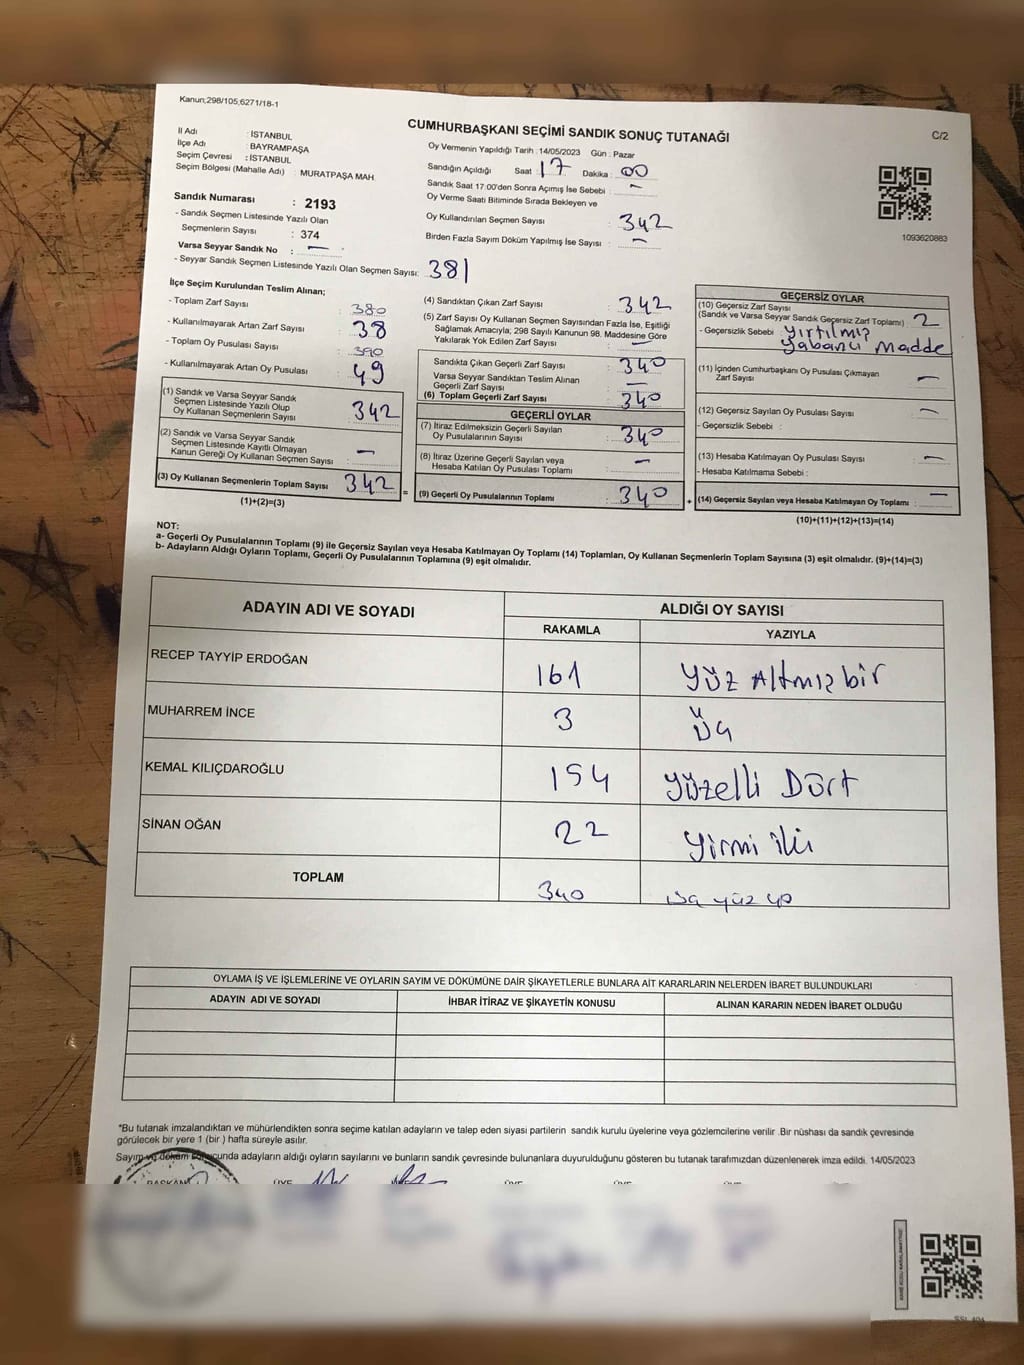 Kanun;298/105;6271/18-1
CUMHURBAŞKANI SEÇİMİ SANDIK SONUÇ TUTANAĞI
C/2
İl Adı : İSTANBUL
İlçe Adı : BAYRAMPAŞA
Seçim Çevresi : İSTANBUL
Seçim Bölgesi (Mahalle Adı) : MURATPAŞA MAH.
Sandık Numarası : 2193
- Sandık Seçmen Listesinde Yazılı Olan
Seçmenlerin Sayısı : 374
Varsa Seyyar Sandık No : —
- Seyyar Sandık Seçmen Listesinde Yazılı Olan Seçmen Sayısı: 381
Oy Vermenin Yapıldığı Tarih : 14/05/2023 Gün : Pazar
Sandığın Açıldığı Saat : 17 Dakika : 00
Sandık Saat 17:00'den Sonra Açımış İse Sebebi : —
Oy Verme Saati Bitiminde Sırada Bekleyen ve
Oy Kullandırılan Seçmen Sayısı : 342
Birden Fazla Sayım Döküm Yapılmış İse Sayısı : —
1093620883
İlçe Seçim Kurulundan Teslim Alınan;
- Toplam Zarf Sayısı : 380
- Kullanılmayarak Artan Zarf Sayısı : 38
- Toplam Oy Pusulası Sayısı : 390
- Kullanılmayarak Artan Oy Pusulası : 49
(1) Sandık ve Varsa Seyyar Sandık
Seçmen Listesinde Yazılı Olup
Oy Kullanan Seçmenlerin Sayısı : 342
(2) Sandık ve Varsa Seyyar Sandık
Seçmen Listesinde Kayıtlı Olmayan
Kanun Gereği Oy Kullanan Seçmen Sayısı : —
(3) Oy Kullanan Seçmenlerin Toplam Sayısı : 342
(1)+(2)=(3)
(4) Sandıktan Çıkan Zarf Sayısı : 342
(5) Zarf Sayısı Oy Kullanan Seçmen Sayısından Fazla İse, Eşitliği
Sağlamak Amacıyla; 298 Sayılı Kanunun 98. Maddesine Göre
Yakılarak Yok Edilen Zarf Sayısı : —
Sandıkta Çıkan Geçerli Zarf Sayısı : 340
Varsa Seyyar Sandıktan Teslim Alınan
Geçerli Zarf Sayısı : —
(6) Toplam Geçerli Zarf Sayısı : 340
GEÇERLİ OYLAR
(7) İtiraz Edilmeksizin Geçerli Sayılan
Oy Pusulalarının Sayısı : 340
(8) İtiraz Üzerine Geçerli Sayılan veya
Hesaba Katılan Oy Pusulası Toplamı : —
= (9) Geçerli Oy Pusulalarının Toplamı : 340
GEÇERSİZ OYLAR
(10) Geçersiz Zarf Sayısı
(Sandık ve Varsa Seyyar Sandık Geçersiz Zarf Toplamı) : 2
- Geçersizlik Sebebi : yırtılmış
yabancı madde
(11) İçinden Cumhurbaşkanı Oy Pusulası Çıkmayan
Zarf Sayısı : —
(12) Geçersiz Sayılan Oy Pusulası Sayısı : —
- Geçersizlik Sebebi :
(13) Hesaba Katılmayan Oy Pusulası Sayısı : —
- Hesaba Katılmama Sebebi :
+ (14) Geçersiz Sayılan veya Hesaba Katılmayan Oy Toplamı : —
(10)+(11)+(12)+(13)=(14)
NOT:
a- Geçerli Oy Pusulalarının Toplamı (9) ile Geçersiz Sayılan veya Hesaba Katılmayan Oy Toplamı (14) Toplamları, Oy Kullanan Seçmenlerin Toplam Sayısına (3) eşit olmalıdır. (9)+(14)=(3)
b- Adayların Aldığı Oyların Toplamı, Geçerli Oy Pusulalarının Toplamına (9) eşit olmalıdır.
ADAYIN ADI VE SOYADI ALDIĞI OY SAYISI
RAKAMLA YAZIYLA
RECEP TAYYİP ERDOĞAN 161 yüz Altmış bir
MUHARREM İNCE 3 üç
KEMAL KILIÇDAROĞLU 154 yüzelli Dört
SİNAN OĞAN 22 yirmi iki
TOPLAM 340 üç yüz 40
OYLAMA İŞ VE İŞLEMLERİNE VE OYLARIN SAYIM VE DÖKÜMÜNE DAİR ŞİKAYETLERLE BUNLARA AİT KARARLARIN NELERDEN İBARET BULUNDUKLARI
ADAYIN ADI VE SOYADI İHBAR İTİRAZ VE ŞİKAYETİN KONUSU ALINAN KARARIN NEDEN İBARET OLDUĞU
*Bu tutanak imzalandıktan ve mühürlendikten sonra seçime katılan adayların ve talep eden siyasi partilerin sandık kurulu üyelerine veya gözlemcilerine verilir .Bir nüshası da sandık çevresinde
görülecek bir yere 1 (bir ) hafta süreyle asılır.
Sayım ve döküm sonucunda adayların aldığı oyların sayılarını ve bunların sandık çevresinde bulunanlara duyurulduğunu gösteren bu tutanak tarafımızdan düzenlenerek imza edildi. 14/05/2023
BAŞKAN ÜYE